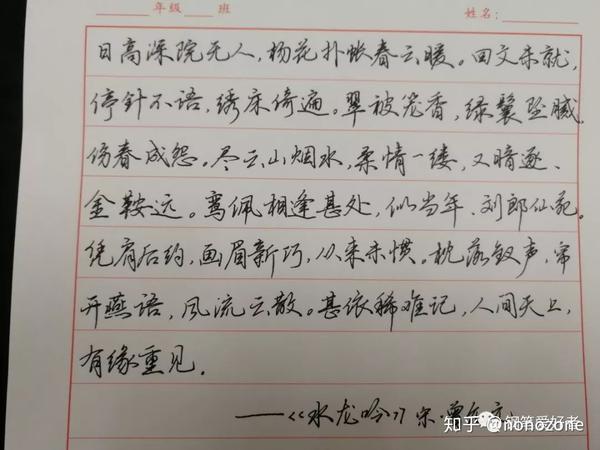 年级 班 姓名:
日高深院无人,杨花扑帐春云暖。回文未就,
停针不语,绣床倚遍。翠被笼香,绿鬟坠腻,
伤春成怨。尽云山烟水,柔情一缕,又暗逐、
金鞍远。鸾佩相逢甚处,似当年、刘郎仙苑。
凭肩后约,画眉新巧,从来未惯。枕落钗声,帘
开燕语,风流云散。甚依稀难记,人间天上,
有缘重见。
——《水龙吟》宋·曾允元
钢笔爱好者
知乎 @nonozone